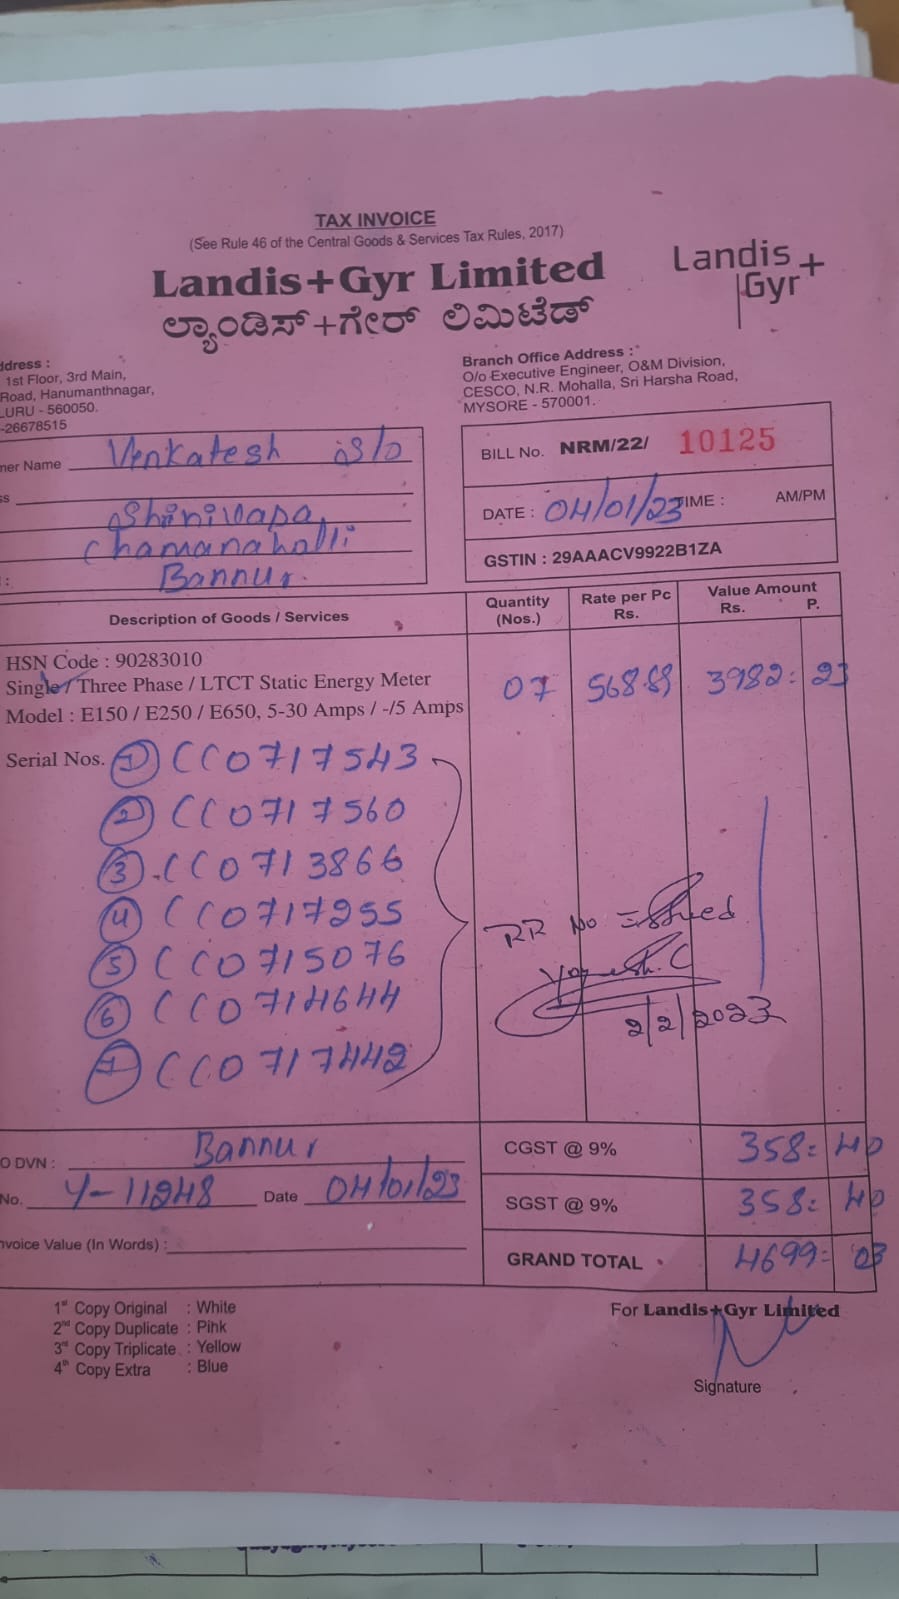 TAX INVOICE
(See Rule 46 of the Central Goods & Services Tax Rules, 2017)
Landis+Gyr Limited
ಲ್ಯಾಂಡಿಸ್+ಗೇರ್ ಲಿಮಿಟೆಡ್
Landis+
Gyr
ddress :
1st Floor, 3rd Main,
Road, Hanumanthnagar,
LURU - 560050.
-26678515
Branch Office Address :
O/o Executive Engineer, O&M Division,
CESCO, N.R. Mohalla, Sri Harsha Road,
MYSORE - 570001.
mer Name Venkatesh S/o
ss
Shinivasa,
Chamanahalli
: Bannur.
BILL No. NRM/22/ 10125
DATE : 04/01/23 TIME : AM/PM
GSTIN : 29AAACV9922B1ZA
Description of Goods / Services
Quantity (Nos.)
Rate per Pc Rs.
Value Amount Rs. P.
HSN Code : 90283010
Single / Three Phase / LTCT Static Energy Meter 07 568.89 3982=23
Model : E150 / E250 / E650, 5-30 Amps / -/5 Amps
Serial Nos. 1 CC0717543
2 CC0717560
3 CC0713866
4 CC0717255
5 CC0715076
6 CC0714644
7 CC0717442
RR No Issued
Yogesh.C
2/2/2023
O DVN : Bannur
No. Y-11248 Date 04/01/23
nvoice Value (In Words) :
CGST @ 9% 358=40
SGST @ 9% 358=40
GRAND TOTAL 4699=03
1st Copy Original : White
2nd Copy Duplicate : Pink
3rd Copy Triplicate : Yellow
4th Copy Extra : Blue
For Landis+Gyr Limited
Signature